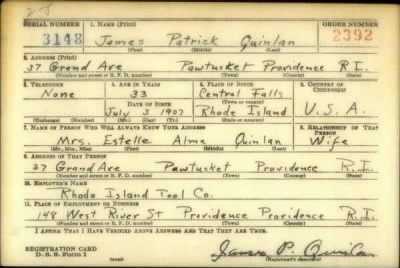 SERIAL NUMBER 1. NAME (Print) ORDER NUMBER
3148 James Patrick Quinlan 2392
(First) (Middle) (Last)
2. ADDRESS (Print)
37 Grand Ave Pawtucket Providence R.I.
(Number and street or R. F. D. number) (Town) (County) (State)
3. TELEPHONE 4. AGE IN YEARS 5. PLACE OF BIRTH 6. COUNTRY OF CITIZENSHIP
None 33 Central Falls
(Town or county)
DATE OF BIRTH
July 3 1907 Rhode Island U.S.A.
(Exchange) (Number) (Mo.) (Day) (Yr.) (State or country)
7. NAME OF PERSON WHO WILL ALWAYS KNOW YOUR ADDRESS 8. RELATIONSHIP OF THAT PERSON
Mrs. Estelle Alma Quinlan Wife
(Mr., Mrs., Miss) (First) (Middle) (Last)
9. ADDRESS OF THAT PERSON
37 Grand Ave Pawtucket Providence R.I.
(Number and street or R. F. D. number) (Town) (County) (State)
10. EMPLOYER'S NAME
Rhode Island Tool Co.
11. PLACE OF EMPLOYMENT OR BUSINESS
148 West River St Providence Providence R.I.
(Number and street or R. F. D. number) (Town) (County) (State)
I AFFIRM THAT I HAVE VERIFIED ABOVE ANSWERS AND THAT THEY ARE TRUE.
REGISTRATION CARD
D. S. S. Form 1 (over) James P. Quinlan
(Registrant's signature)